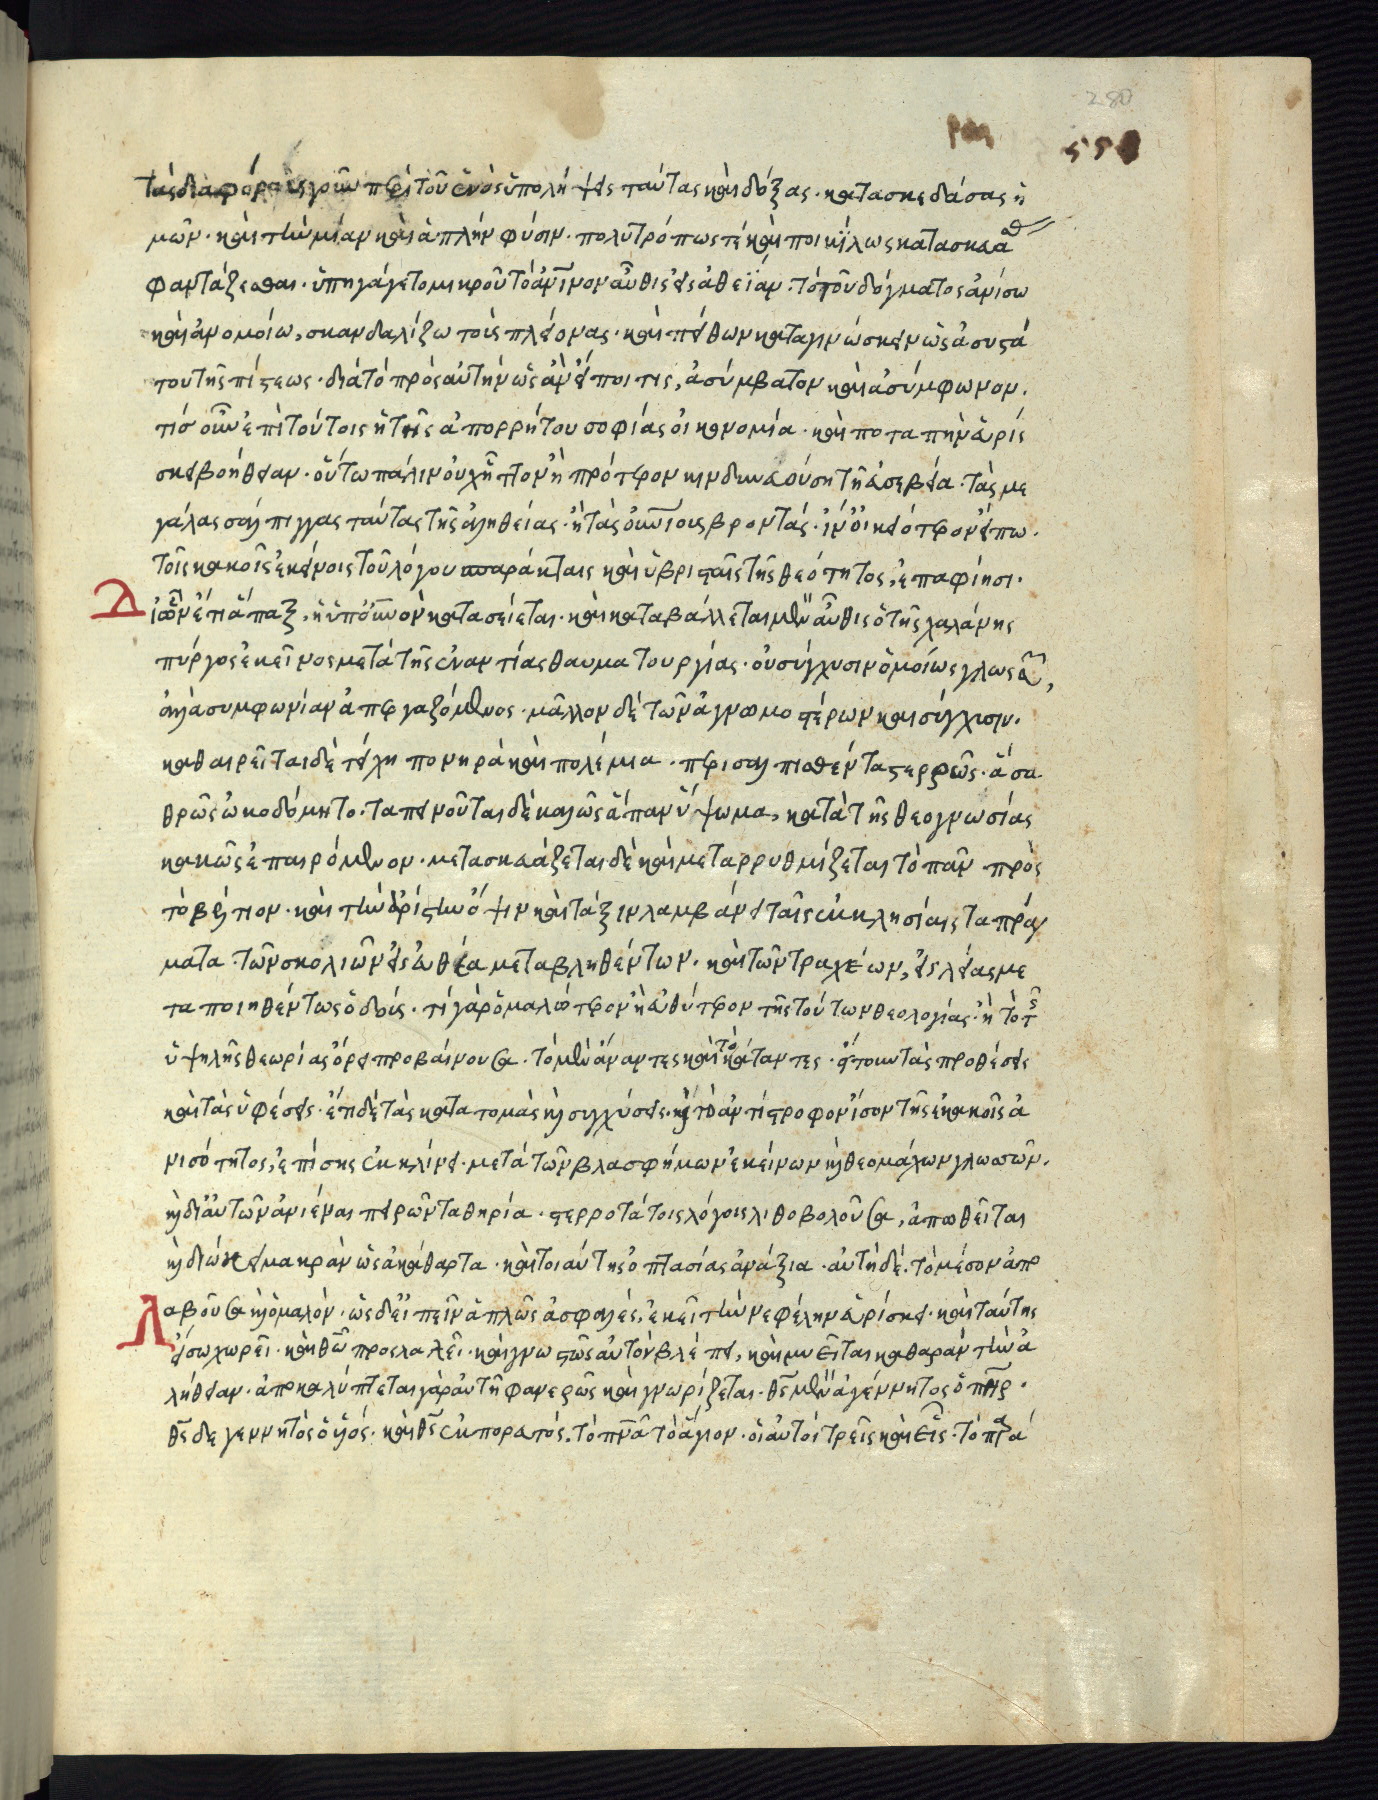 280
551
τὰς διαφόρους γοῦν περὶ τοῦ ἑνὸς ὑπολήψεις ταύτας καὶ δόξας· κατασκεδάσας ἡ
μῶν· καὶ τὴν μίαν καὶ ἁπλῆν φύσιν· πολυτρόπως τὲ καὶ ποικίλως κατασκευα
φαντάζεσθαι· ὑπηγάγετο μικροῦ τὸ ἀνῖνον αὖθις εἰς ἀθεΐαν· τὸ τοῦ δόγματος ἀνίσω
καὶ ἀνομοίω, σκανδαλίζω τοὺς πλείονας· καὶ πείθων καταγινώσκειν ὡς ἀσυστά
του τῆς πίστεως· διὰ τὸ πρὸς αὐτὴν ὡς ἂν εἴποι τις, ἀσύμβατον καὶ ἀσύμφωνον.
τίς οὖν ἐπὶ τούτοις ἡ τῆς ἀπορρήτου σοφίας οἰκονομία· καὶ ποταπὴν εὑρίς
σκει βοήθειαν· οὕτω πάλιν οὐχ ἧττον ἢ πρότερον κινδυνευούσῃ τῇ εὐσεβεία· τὰς με
γάλας σάλπιγγας ταύτας τῆς ἀληθείας· ἢ τὰς οὐνίους βροντάς· ἵν' οἰκειότερον εἴπω.
τοῖς κακοῖς ἐκείνοις τοῦ λόγου σπαράκταις καὶ ὑβρισταῖς τῆς θεότητος, ἐπαφίησι.
Διῶν ἔτι ἅπαξ, ἡ ὑπ' οὐνὸν κατασείεται· καὶ καταβάλλεται μὲν αὖθις ὁ τῆς χαλάνης
πύργος ἐκεῖνος μετὰ τῆς ἐναντίας θαυματουργίας· οὐ σύγχυσιν ὁμοίως γλωσσῶν,
ἀλλὰ συμφωνίαν ἀπεργαζόμενος· μᾶλλον δὲ τῶν ἀγνωμονεστέρων καὶ σύγχισιν.
καθαιρεῖται δὲ τείχη πονηρὰ καὶ πολέμια· περισαλπισθέντα στερρῶς· ἃ σα
θρῶς ὠκοδόμητο· ταπεινοῦται δὲ καλῶς ἅπαν ὕψωμα, κατὰ τῆς θεογνωσίας
κακῶς ἐπαιρόμενον· μετασκευάζεται δὲ καὶ μεταρρυθμίζεται τὸ πᾶν πρὸς
τὸ βέλτιον· καὶ τὴν ἀρίστην ὄψιν καὶ τάξιν λαμβάνει ταῖς ἐκκλησίαις τα πράγ
ματα· τῶν σκολιῶν εἰς εὐθεῖα μεταβληθέντων· καὶ τῶν τραχέων, εἰς λείας με
ταποιηθέντων ὁδούς· τί γὰρ ὁμαλώτερον ἢ εὐθύτερον τῆς τούτων θεολογίας· ἢ
ὑψηλῆς θεωρίας ὄρει προβαίνουσα· τὸ μὲν ἄναντες καὶ τὸ κάταντες· ἤτοι τὰς προθέσεις
καὶ τὰς ὑφέσεις· ἔτι δὲ τὰς κατατομὰς καὶ συγχύσεις· καὶ τὸ ἀντίστροφον ἴσον τῆς ἐν κακοῖς ἀ
νισότητος, ἐπίσης ἐκκλίνει· μετὰ τῶν βλασφήμων ἐκείνων καὶ θεομάχων γλωσσῶν.
καὶ δι' αὐτῶν ἀνιέναι πειρῶντα θηρία· στερροτάτοις λόγοις λιθοβολοῦσα, ἀπωθεῖται
καὶ διώκει μακρὰν ὡς ἀκάθαρτα· καὶ τοιαύτης ὀπτασίας ἀνάξια· αὐτὴ δὲ· τὸ μέσον ἀπο
Λαβοῦσα καὶ ὁμαλόν· ὡς δεῖ εἰπεῖν ἁπλῶς ἀσφαλές, ἐκεῖ τὴν νεφέλην εὑρίσκει· καὶ ταύτης
εἴσω χωρεῖ· καὶ θῶ προσλαλεῖ· καὶ γνωστῶς αὐτὸν βλέπει, καὶ μυεῖται καθαρὰν τὴν ἀ
λήθειαν· ἀποκαλύπτεται γὰρ αὐτῇ φανερῶς καὶ γνωρίζεται· θς μὲν ἀγέννητος ὁ πηρ·
θς δε γεννητὸς ὁ υἱός· καὶ θς ἐκπορευτός· τὸ πνα τὸ ἅγιον· οἱ αὐτοὶ τρεῖς καὶ εἷς· τὸ